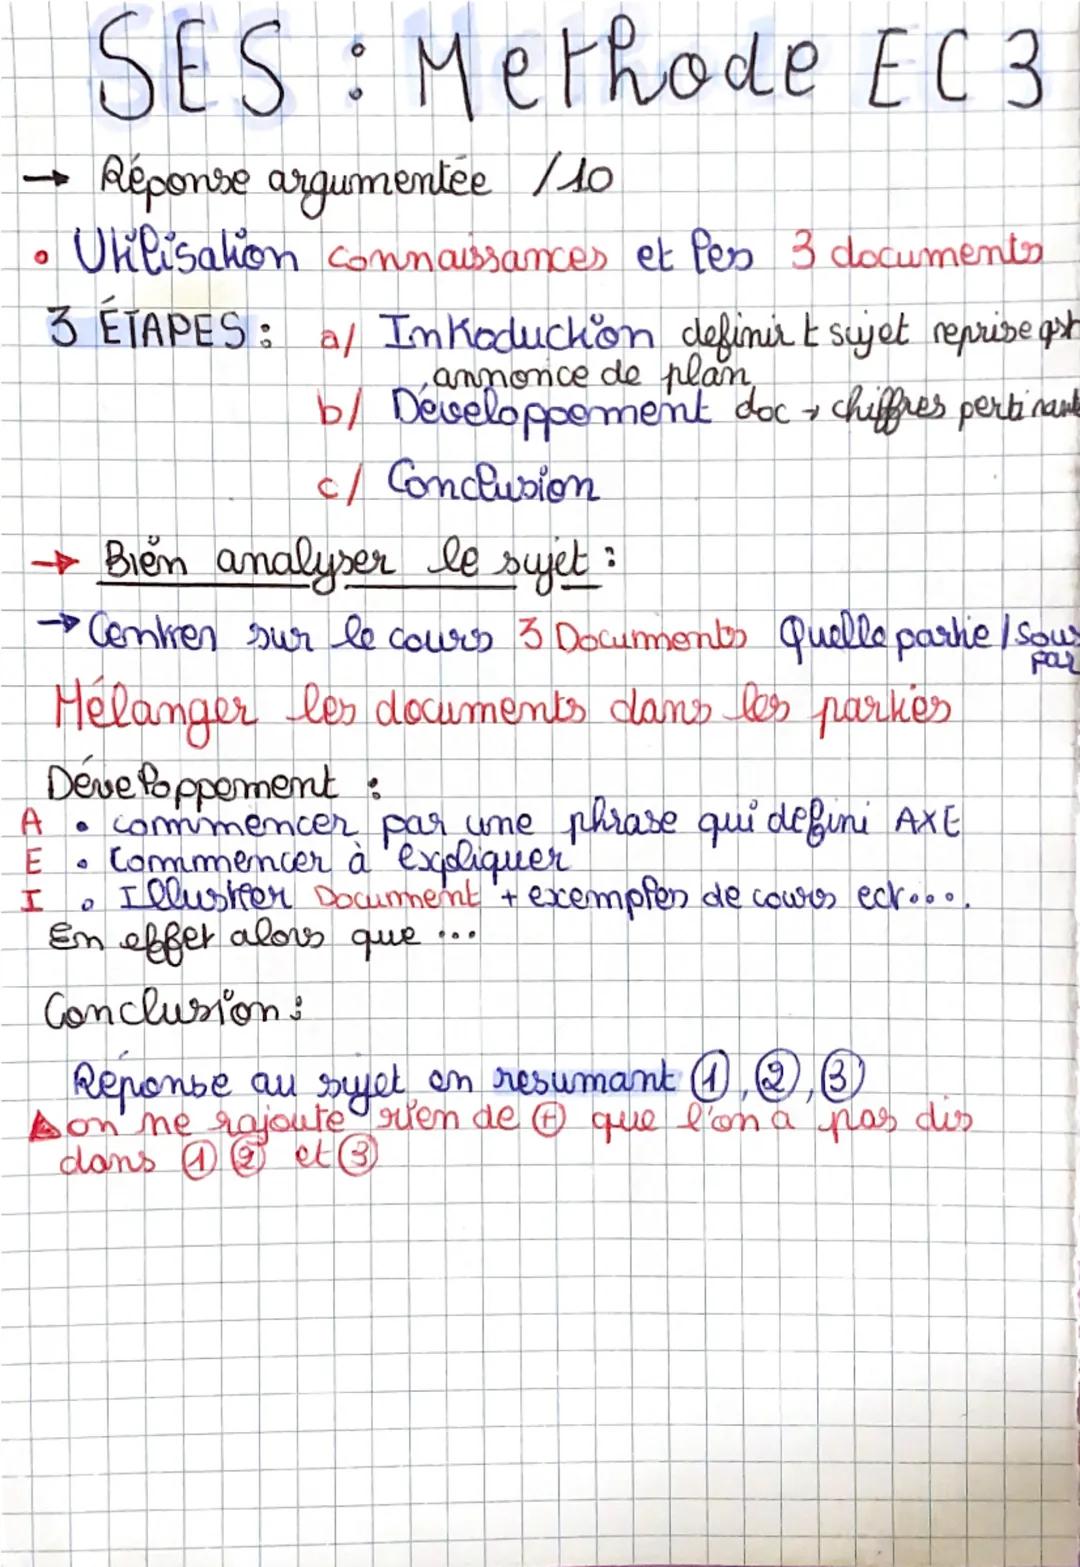 SES : Methode EC3
→ Réponse argumentée /10
• Utilisation connaissances et les 3 documents
3 ÉTAPES : a/ Introduction definir t sujet reprise qst
annonce de plan
b/ Développement doc → chiffres pertinant
c/ Conclusion
→ Bien analyser le sujet :
→ Centrer sur le cours 3 Documents Quelle partie / sous
par
Mélanger les documents dans les parties
Développement :
A • commencer par une phrase qui défini AXE
E • Commencer à expliquer
I • Illustrer Document + exemples de cours ect....
En effet alors que ...
Conclusion :
Réponse au sujet en resumant ①, ②, ③
on ne rajoute rien de ⊕ que l'on a pas dis
dans ① ② et ③